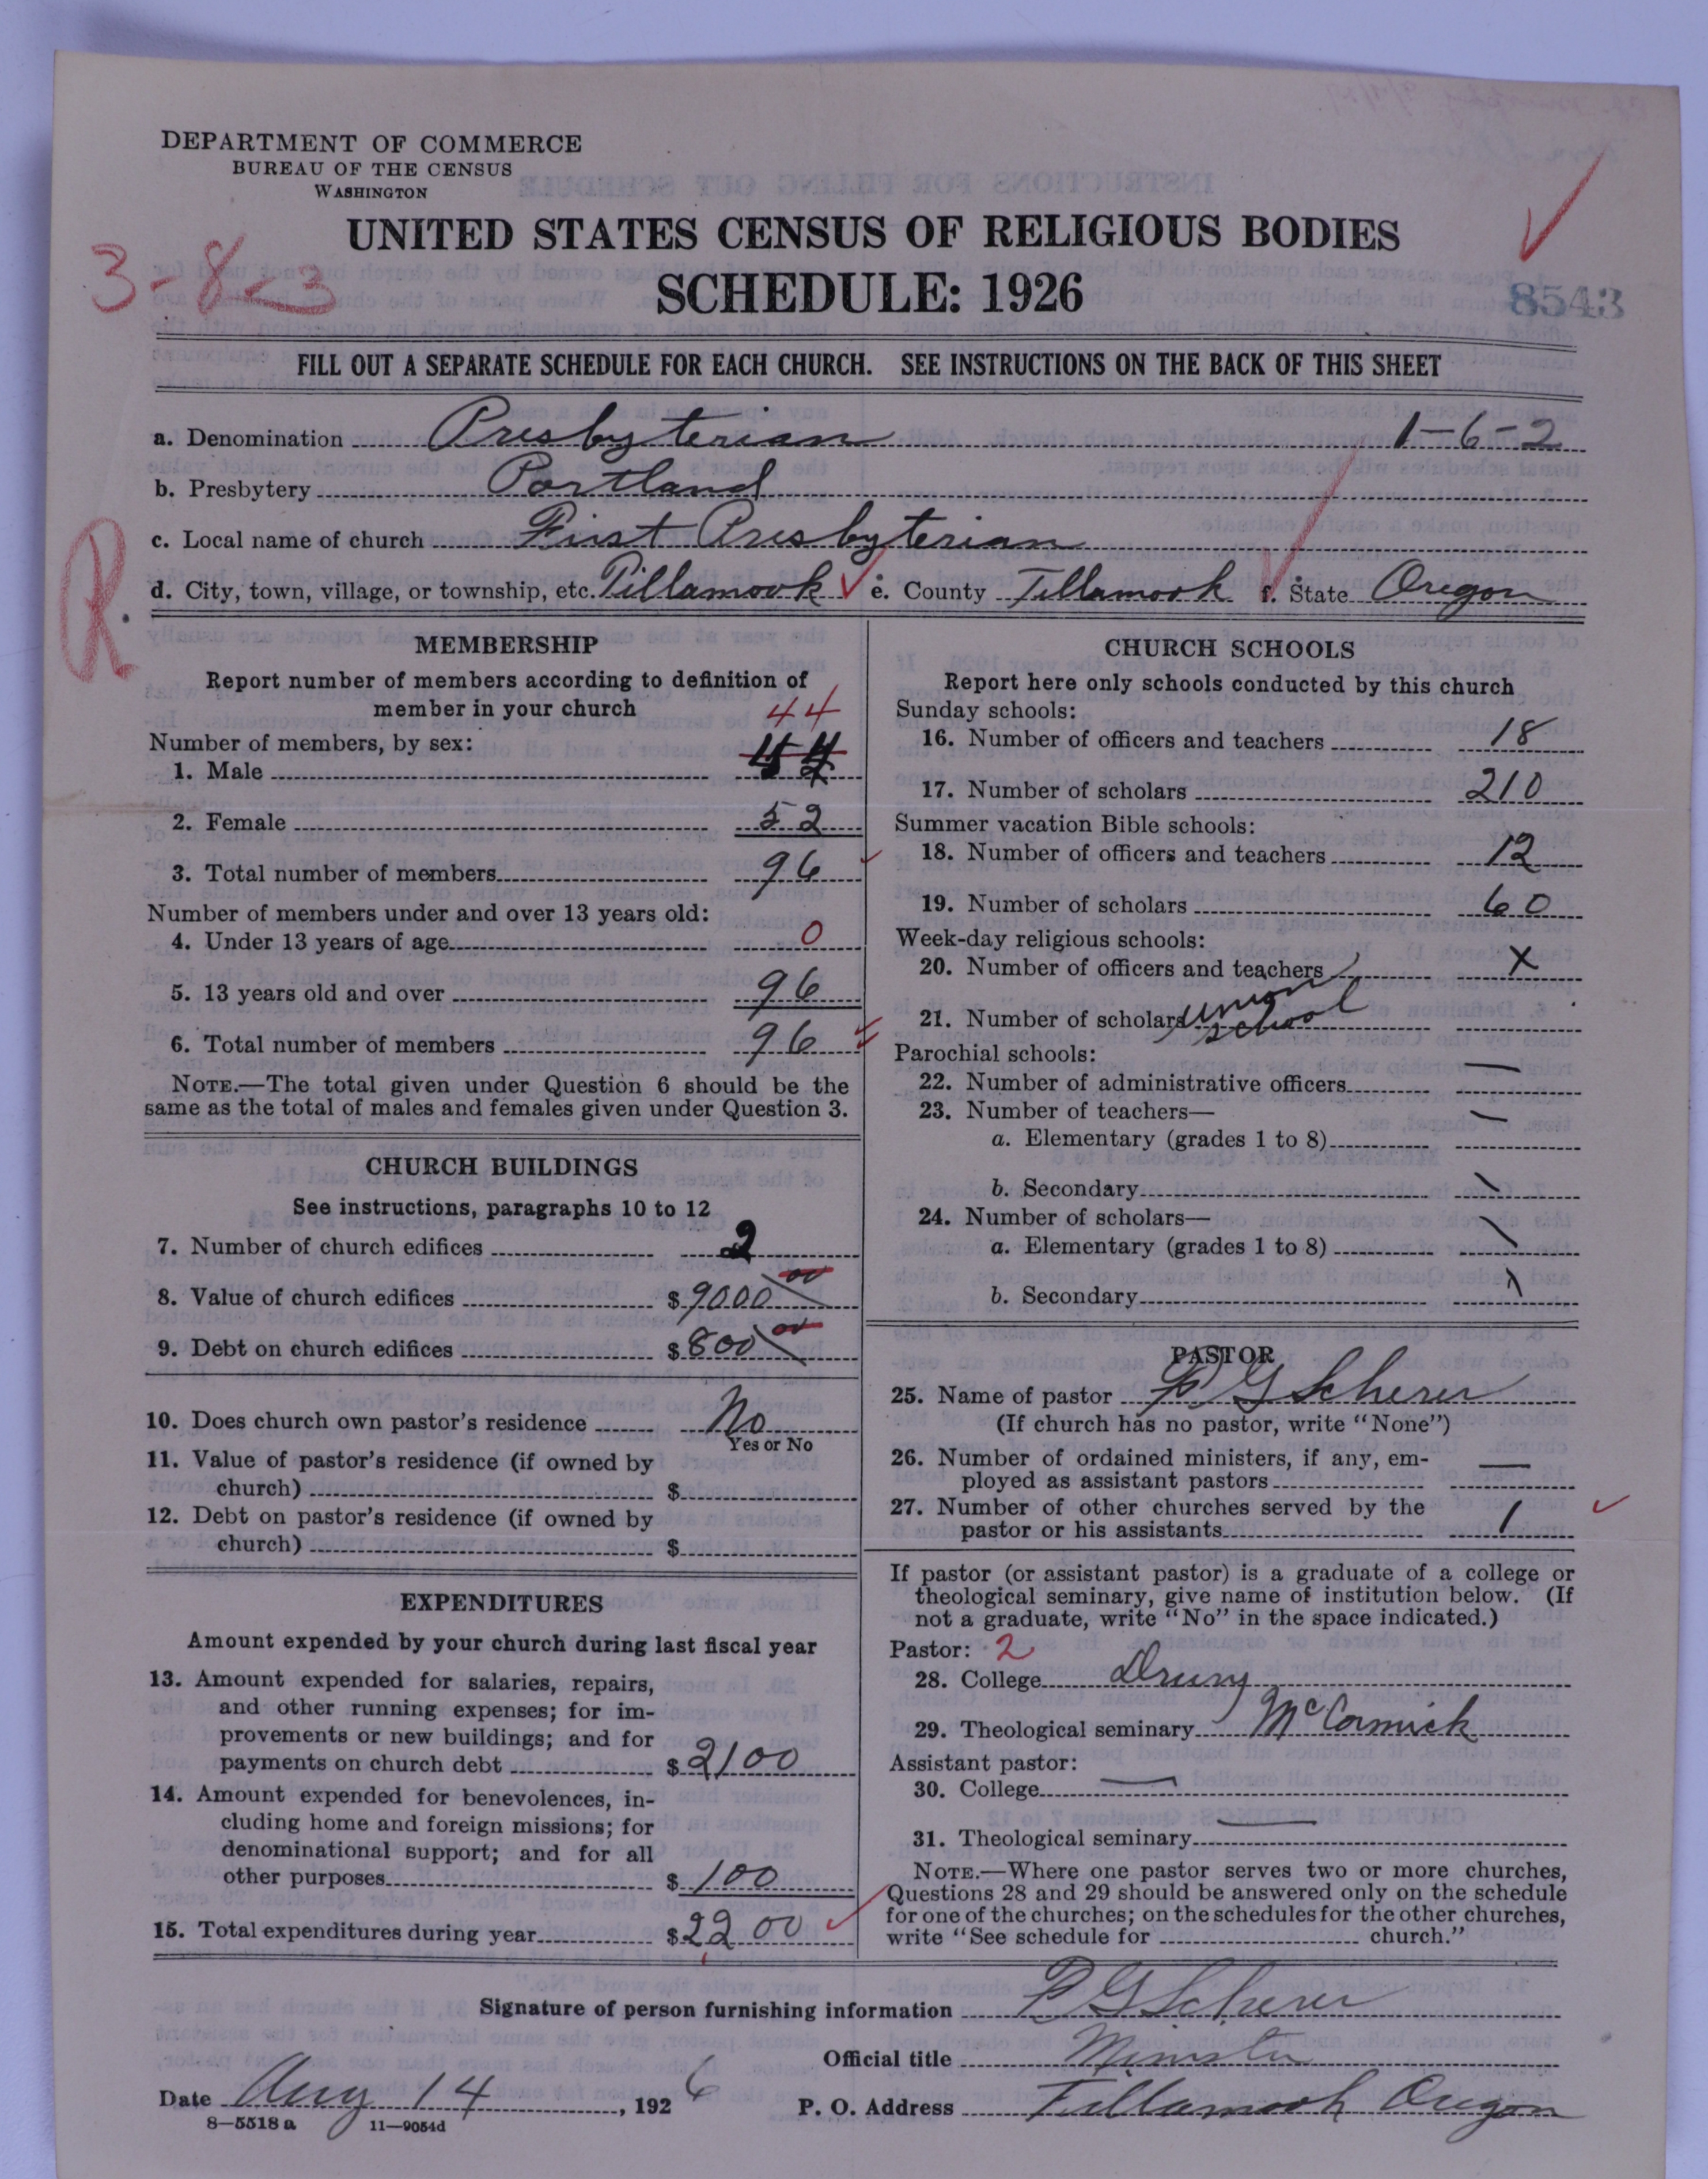 DEPARTMENT OF COMMERCE
BUREAU OF THE CENSUS
WASHINGTON
UNITED STATES CENSUS OF RELIGIOUS BODIES
3-8-3
SCHEDULE: 1926
8543
FILL OUT A SEPARATE SCHEDULE FOR EACH CHURCH. SEE INSTRUCTIONS ON THE BACK OF THIS SHEET
a. Denomination Presbyterian 1-6-2
b. Presbytery Portland
c. Local name of church First Presbyterian
d. City, town, village, or township, etc. Tillamook e. County Tillamook f. State Oregon
R.
MEMBERSHIP
Report number of members according to definition of
member in your church
44
Number of members, by sex:
1. Male 44
2. Female 52
3. Total number of members 96
Number of members under and over 13 years old:
4. Under 13 years of age 0
5. 13 years old and over 96
6. Total number of members 96
NOTE.—The total given under Question 6 should be the
same as the total of males and females given under Question 3.
CHURCH BUILDINGS
See instructions, paragraphs 10 to 12
7. Number of church edifices 2
8. Value of church edifices $ 9000 00
9. Debt on church edifices $ 800 00
10. Does church own pastor's residence No
Yes or No
11. Value of pastor's residence (if owned by
church) $
12. Debt on pastor's residence (if owned by
church) $
EXPENDITURES
Amount expended by your church during last fiscal year
13. Amount expended for salaries, repairs,
and other running expenses; for im-
provements or new buildings; and for
payments on church debt $ 2100
14. Amount expended for benevolences, in-
cluding home and foreign missions; for
denominational support; and for all
other purposes $ 100
15. Total expenditures during year $ 2200
CHURCH SCHOOLS
Report here only schools conducted by this church
Sunday schools:
16. Number of officers and teachers 18
17. Number of scholars 210
Summer vacation Bible schools:
18. Number of officers and teachers 12
19. Number of scholars 60
Week-day religious schools:
20. Number of officers and teachers X
21. Number of scholars union
school
Parochial schools:
22. Number of administrative officers —
23. Number of teachers—
a. Elementary (grades 1 to 8)
b. Secondary
24. Number of scholars—
a. Elementary (grades 1 to 8)
b. Secondary
PASTOR
25. Name of pastor P G Scherer
(If church has no pastor, write "None")
26. Number of ordained ministers, if any, em-
ployed as assistant pastors —
27. Number of other churches served by the
pastor or his assistants 1
If pastor (or assistant pastor) is a graduate of a college or
theological seminary, give name of institution below. (If
not a graduate, write "No" in the space indicated.)
Pastor: 2
28. College Drury
29. Theological seminary McCormick
Assistant pastor:
30. College —
31. Theological seminary —
NOTE.—Where one pastor serves two or more churches,
Questions 28 and 29 should be answered only on the schedule
for one of the churches; on the schedules for the other churches,
write "See schedule for church."
Signature of person furnishing information P G Scherer
Official title Minister
Date Aug 14, 1926 P. O. Address Tillamook Oregon
8—5518 a 11—9054d